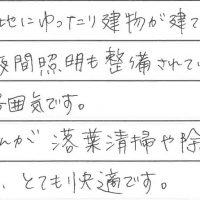 地にゆったり建物が建て
夜間照明も整備されてい
雰囲気です。
んが 落葉清掃や除
、とても快適です。